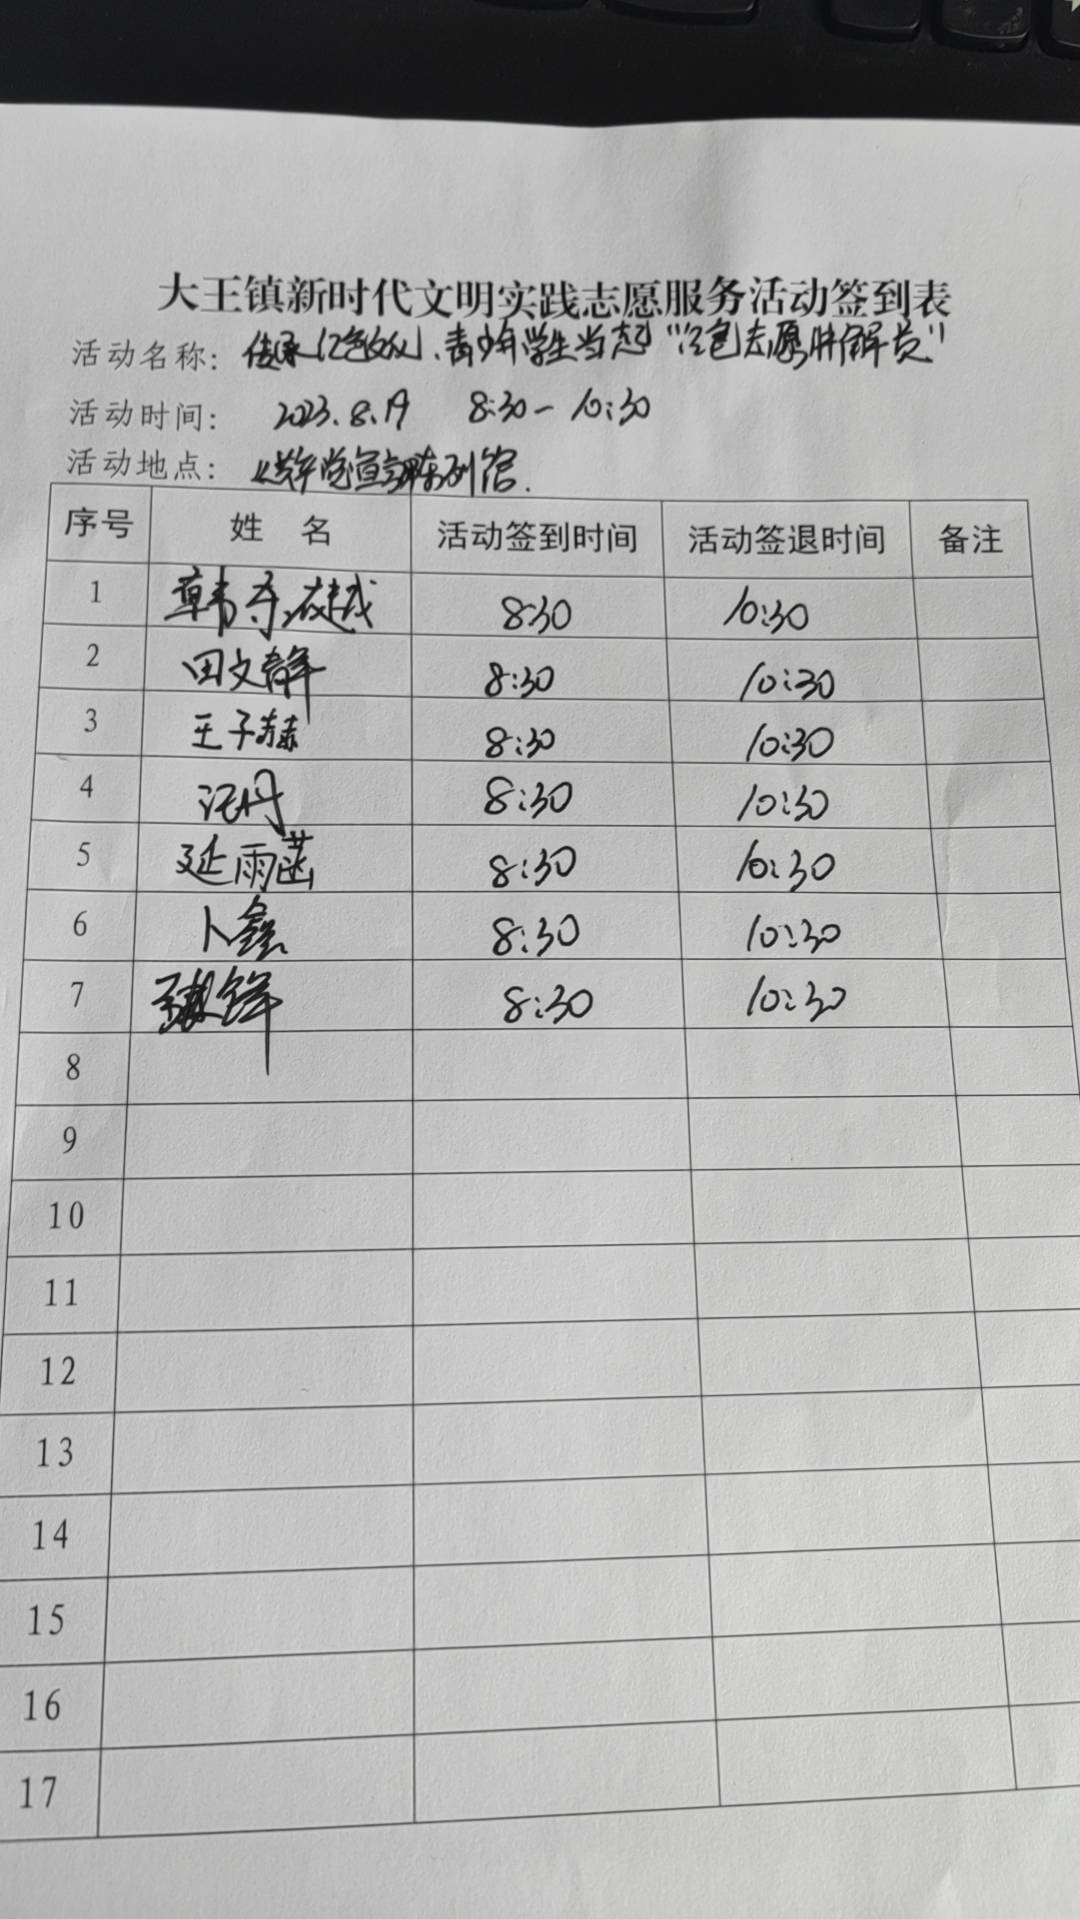 大王镇新时代文明实践志愿服务活动签到表
活动名称: 传承红色文化、青少年学生当起“红色志愿讲解员”
活动时间: 2023.8.19 8:30-10:30
活动地点: 宣言陈列馆.
序号 姓 名 活动签到时间 活动签退时间 备注
1 韩 越 8:30 10:30
2 田文静 8:30 10:30
3 王子赫 8:30 10:30
4 丹 8:30 10:30
5 延雨菡 8:30 10:30
6 卜鑫 8:30 10:30
7 8:30 10:30
8
9
10
11
12
13
14
15
16
17